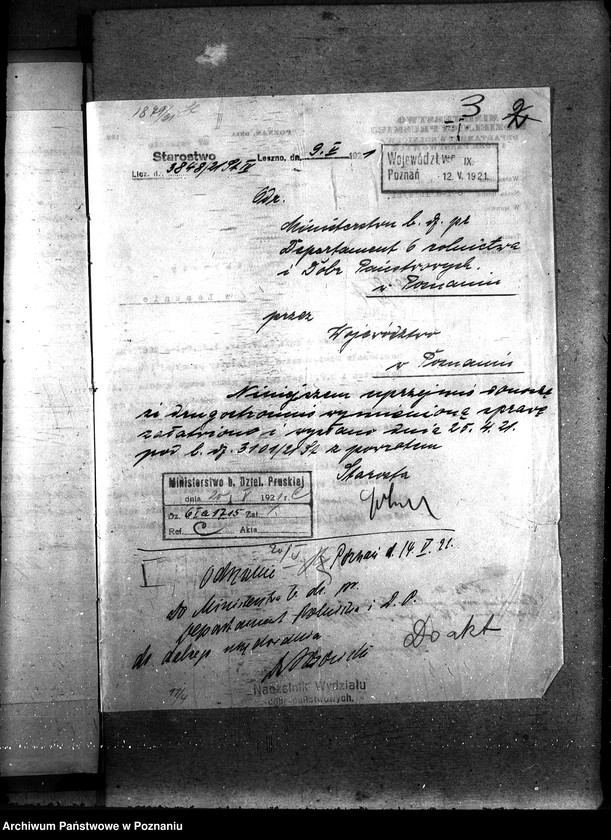 3 2
Starostwo Leszno, dn. 9. V 1921
Licz. dz. 3848/21 St IV
Województwo IX.
Poznań 12. V. 1921
Odr.
Ministerstwu b. dz. pr
Departament 6 rolnictwa
i Dóbr Państwowych.
w Poznaniu
przez
Województwo
w Poznaniu
Niniejszem uprzejmie donoszę
że drugostronnie wymienioną sprawę
załatwiono i wysłano dnia 25. 4. 21.
pod l. dz. 3101/21 St z powrotem
Starosta
Ministerstwo b. Dziel. Pruskiej
dnia 20/V 1921 r.
Dz. 6Ia1715 Zał. 1.
Ref. C Akta
Poznań d. 14 V. 21.
do Ministerstwa b. dz. pr.
Departament Rolnictwa i D. P.
do dalszego
Do akt
Naczelnik Wydziału
dóbr państwowych.
Archiwum Państwowe w Poznaniu